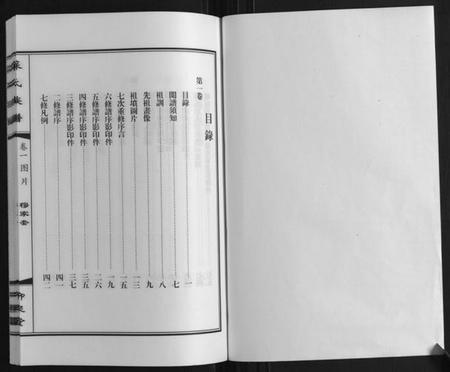 目錄
第一卷
目錄 一
閱譜須知 七
祖訓 八
先祖畫像 九
祖墳圖片 一三
七次重修序言 一五
六修譜序影印件 一九
五修譜序影印件 二六
四修譜序影印件 三五
三修譜序影印件 三七
二修譜序 四一
七修凡例 四二
氏族譜
卷一图片